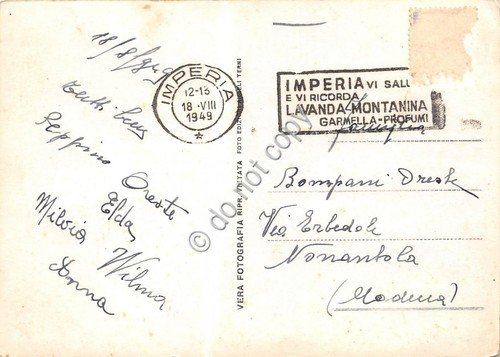 18/8/949
Tutti baci
Peppino
Oreste
Elda
Milvia
Wilma
Anna
IMPERIA
12-13
18·VIII
1949
IMPERIA VI SALU
E VI RICORDA
LAVANDA-MONTANINA
GARMELLA-PROFUMI
Famiglia
Bompani Oreste
Via Erbedole
Nonantola
(Modena)
VERA FOTOGRAFIA RIPR. VIETATA FOTO EDIZ TERNI
do not copy